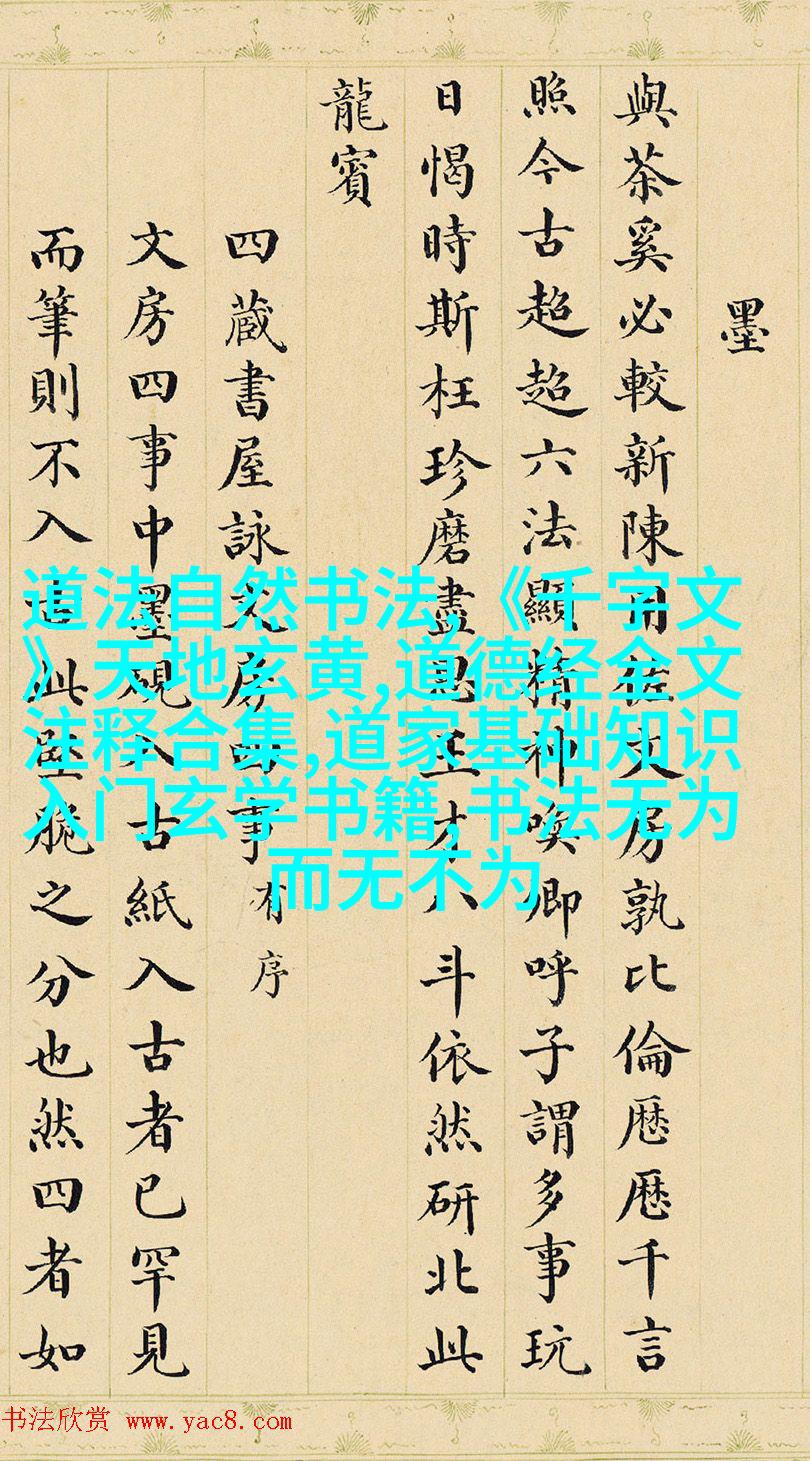 墨
與茶奚必較新陳用佐文房孰比倫厯厯千言
照今古超超六法顯精神喚卿呼子謂多事玩
日愒時斯枉珍磨盡思王才八斗依然研北此
龍賓
四蔵書屋詠文房四事有序
文房四事中墨硯入古紙入古者已罕見
而筆則不入古此堅脆之分也然四者如
道法自然书法,《千字文
》天地玄黄,道德经全文
注释合集,道家基础知识
入门玄学书籍,书法无为
而无不为
书法欣赏 www.yac8.com